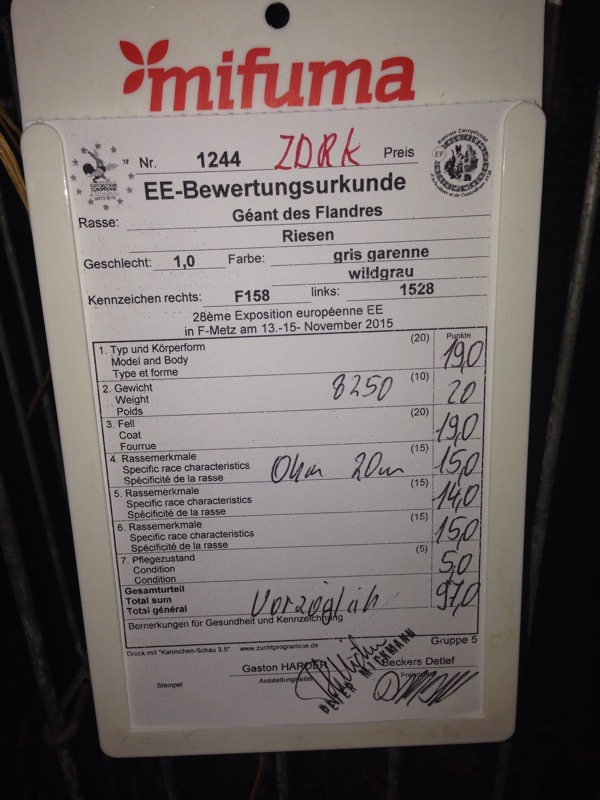 mifuma
Nr. 1244 ZDRK Preis
EE-Bewertungsurkunde
Rasse: Géant des Flandres
Riesen
Geschlecht: 1,0 Farbe: gris garenne
wildgrau
Kennzeichen rechts: F158 links: 1528
28ème Exposition européenne EE
in F-Metz am 13.-15- November 2015
Punkte
1. Typ und Körperform (20) 19,0
Model and Body
Type et forme
2. Gewicht 8250 (10) 20
Weight
Poids
3. Fell (20) 19,0
Coat
Fourrue
4. Rassemerkmale (15) 15,0
Specific race characteristics Ohr 20cm
Spécificité de la rasse
5. Rassemerkmale (15) 14,0
Specific race characteristics
Spécificité de la rasse
6. Rassemerkmale (15) 15,0
Specific race characteristics
Spécificité de la rasse
7. Pflegezustand (5) 5,0
Condition
Condition
Gesamturteil 97,0
Total sum Vorzüglich
Total général
Bemerkungen für Gesundheit und Kennzeichnung
Gruppe 5
Druck mit "Kaninchen-Schau 3.5" www.zuchtprogramme.de
Gaston HARDER Beckers Detlef
Stempel Ausstellungsleiter